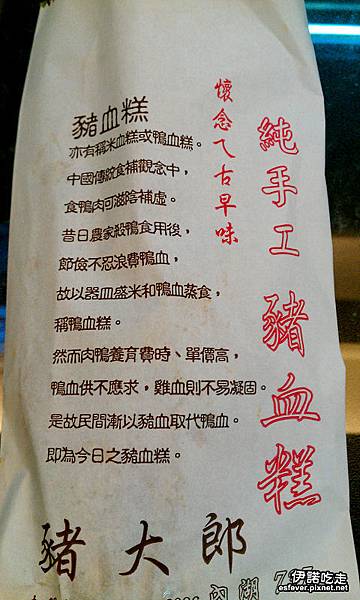 純手工 豬血糕
懷念ㄟ古早味
豬血糕
亦有稱米血糕或鴨血糕。
中國傳統食補觀念中，
食鴨肉可滋陰補虛。
昔日農家殺鴨食用後，
節儉不忍浪費鴨血，
故以器皿盛米和鴨血蒸食，
稱鴨血糕。
然而肉鴨養育費時、單價高，
鴨血供不應求，雞血則不易凝固。
是故民間漸以豬血取代鴨血。
即為今日之豬血糕。
豬大郎
內湖
伊諾吃走
esfever.pixnet.net